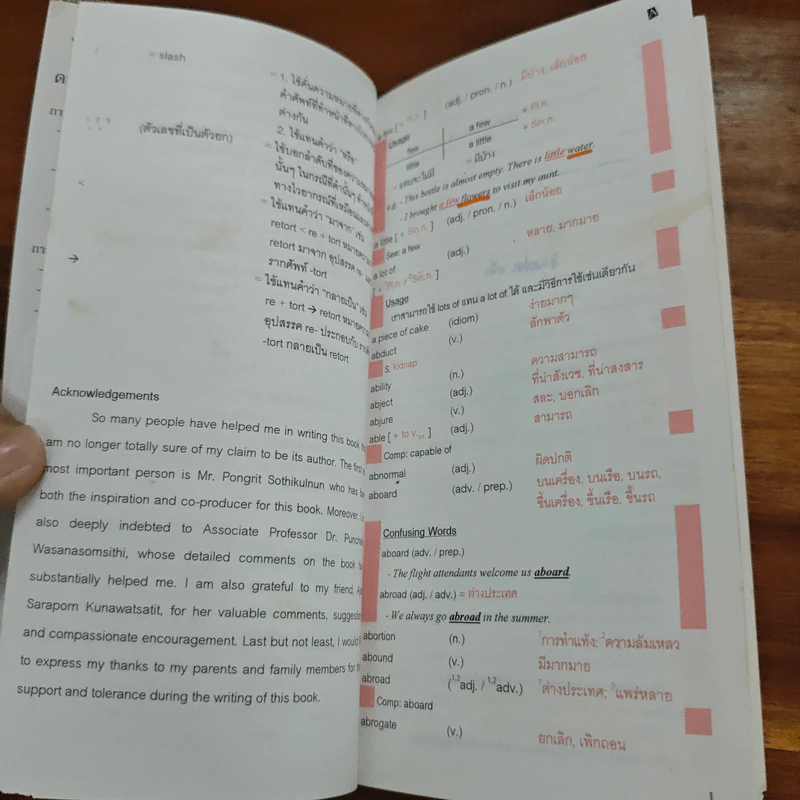 = slash
= 1. ใช้คั่นความหมายที่ต่างกัน
คำศัพท์ที่ทำหน้าที่
ต่างกัน
2. ใช้แทนคำว่า "หรือ"
1 2 3
(ตัวเลขที่เป็นตัวยก)
= ใช้บอกลำดับที่ของความ
นั้นๆ ในกรณีที่คำนั้นๆ ทำ
ทางไวยากรณ์ที่เหมือน
<
= ใช้แทนคำว่า "มาจาก" เช่น
retort < re + tort หมายความ
retort มาจาก อุปสรรค re-
รากศัพท์ -tort
→
= ใช้แทนคำว่า "กลายเป็น" เช่น
re + tort → retort หมายความ
อุปสรรค re- ประกอบกับ ราก
-tort กลายเป็น retort
Acknowledgements
So many people have helped me in writing this book,
am no longer totally sure of my claim to be its author. The first
most important person is Mr. Pongrit Sothikulnun who has
both the inspiration and co-producer for this book. Moreover,
also deeply indebted to Associate Professor Dr.
Wasanasomsithi, whose detailed comments on the book
substantially helped me. I am also grateful to my friend,
Saraporn Kunawatsatit, for her valuable comments,
and compassionate encouragement. Last but not least, I would
to express my thanks to my parents and family members for
support and tolerance during the writing of this book.
A
a few [ + Pl.n. ] (adj. / pron. / n.) มีบ้าง, เล็กน้อย
Usage
few a few + Pl.n.
little a little + Sin.n.
= แทบจะไม่มี = มีบ้าง
e.g. - This bottle is almost empty. There is little water.
- I brought a few flowers to visit my aunt.
a little [ + Sin.n. ] (adj. / pron. / n.) เล็กน้อย
See: a few
a lot of (adj.) หลาย, มากมาย
[ + ¹Pl.n. / ²Sin.n. ]
Usage
เราสามารถใช้ lots of แทน a lot of ได้ และมีวิธีการใช้เช่นเดียวกัน
a piece of cake (idiom) ง่ายมากๆ
abduct (v.) ลักพาตัว
S. kidnap
ability (n.) ความสามารถ
abject (adj.) ที่น่าสังเวช, ที่น่าสงสาร
abjure (v.) สละ, บอกเลิก
able [ + to v.inf ] (adj.) สามารถ
Comp: capable of
abnormal (adj.) ผิดปกติ
aboard (adv. / prep.) บนเครื่อง, บนเรือ, บนรถ,
ขึ้นเครื่อง, ขึ้นเรือ, ขึ้นรถ
Confusing Words
aboard (adv. / prep.)
- The flight attendants welcome us aboard.
abroad (adj. / adv.) = ต่างประเทศ
- We always go abroad in the summer.
abortion (n.) ¹การทำแท้ง; ²ความล้มเหลว
abound (v.) มีมากมาย
abroad (¹,²adj. / ¹,²adv.) ¹ต่างประเทศ; ²แพร่หลาย
Comp: aboard
abrogate (v.) ยกเลิก, เพิกถอน